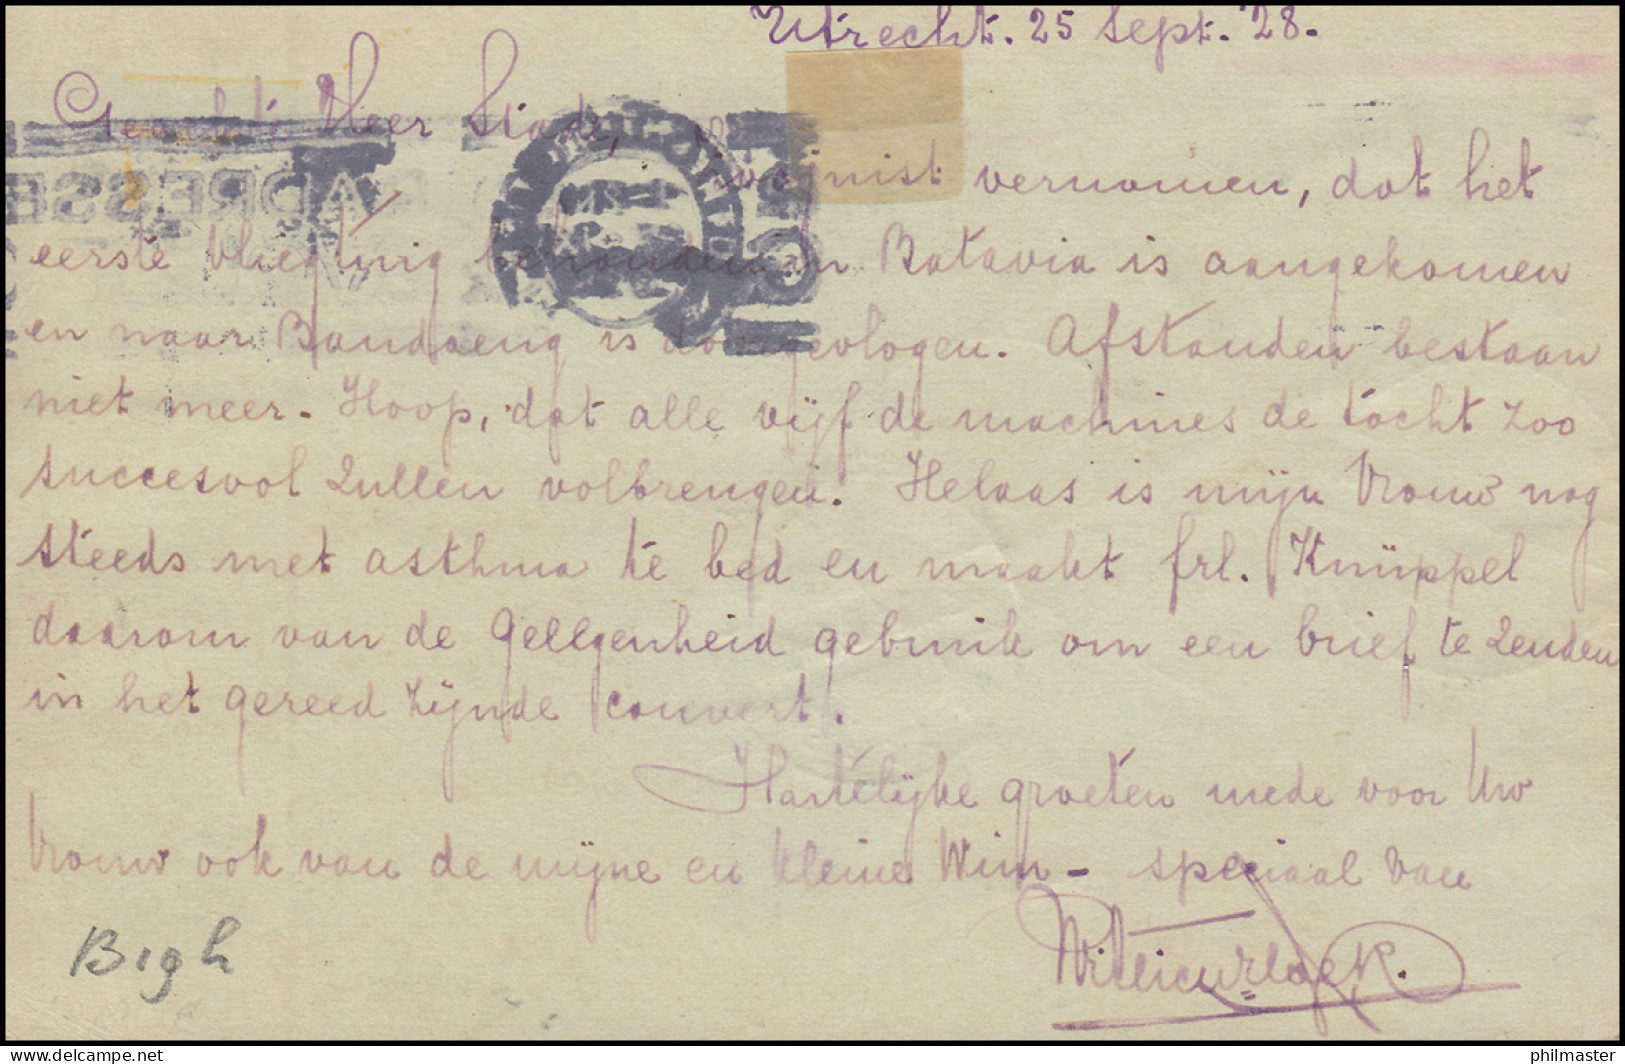 Utrecht. 25 Sept. '28.
Geachte Heer Stade,
juist vernomen, dat het
eerste vliegtuig behouden in Batavia is aangekomen
en naar Bandoeng is doorgevlogen. Afstanden bestaan
niet meer. Hoop, dat alle vijf de machines de tocht zoo
succesvol zullen volbrengen. Helaas is mijn vrouw nog
steeds met asthma te bed en maakt frl. Knüppel
daarom van de gelegenheid gebruik om een brief te zenden
in het gereed zijnde couvert.
Hartelijke groeten mede voor Uw
vrouw ook van de mijne en kleine Wim - speciaal van
Bigh
ADRESSE
philmaster